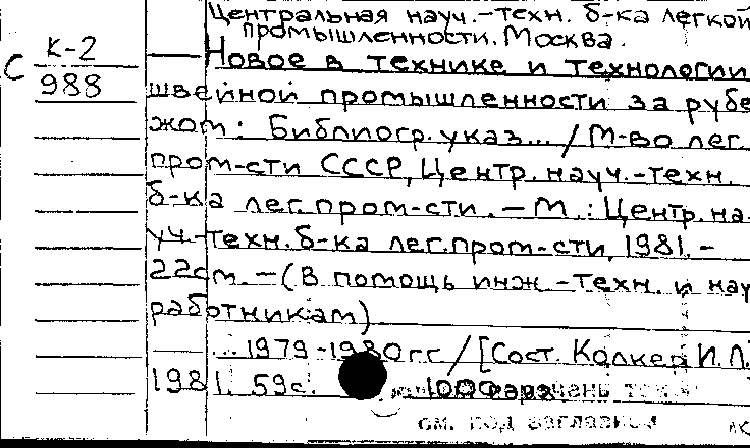 Центральная науч.-техн. б-ка легкой
промышленности. Москва.
С К-2
988
Новое в технике и технологии
швейной промышленности за рубе
жом: Библиогр. указ... / М-во лег.
пром-сти СССР, Центр. науч.-техн.
б-ка лег. пром-сти. - М.: Центр. на-
уч.-техн. б-ка лег. пром-сти, 1981. -
22см. - (В помощь инж.-техн. и нау
работникам)
... 1979-1980 гг / [Сост. Колкер И. Л.
1981. 59с.
см. под заглавием